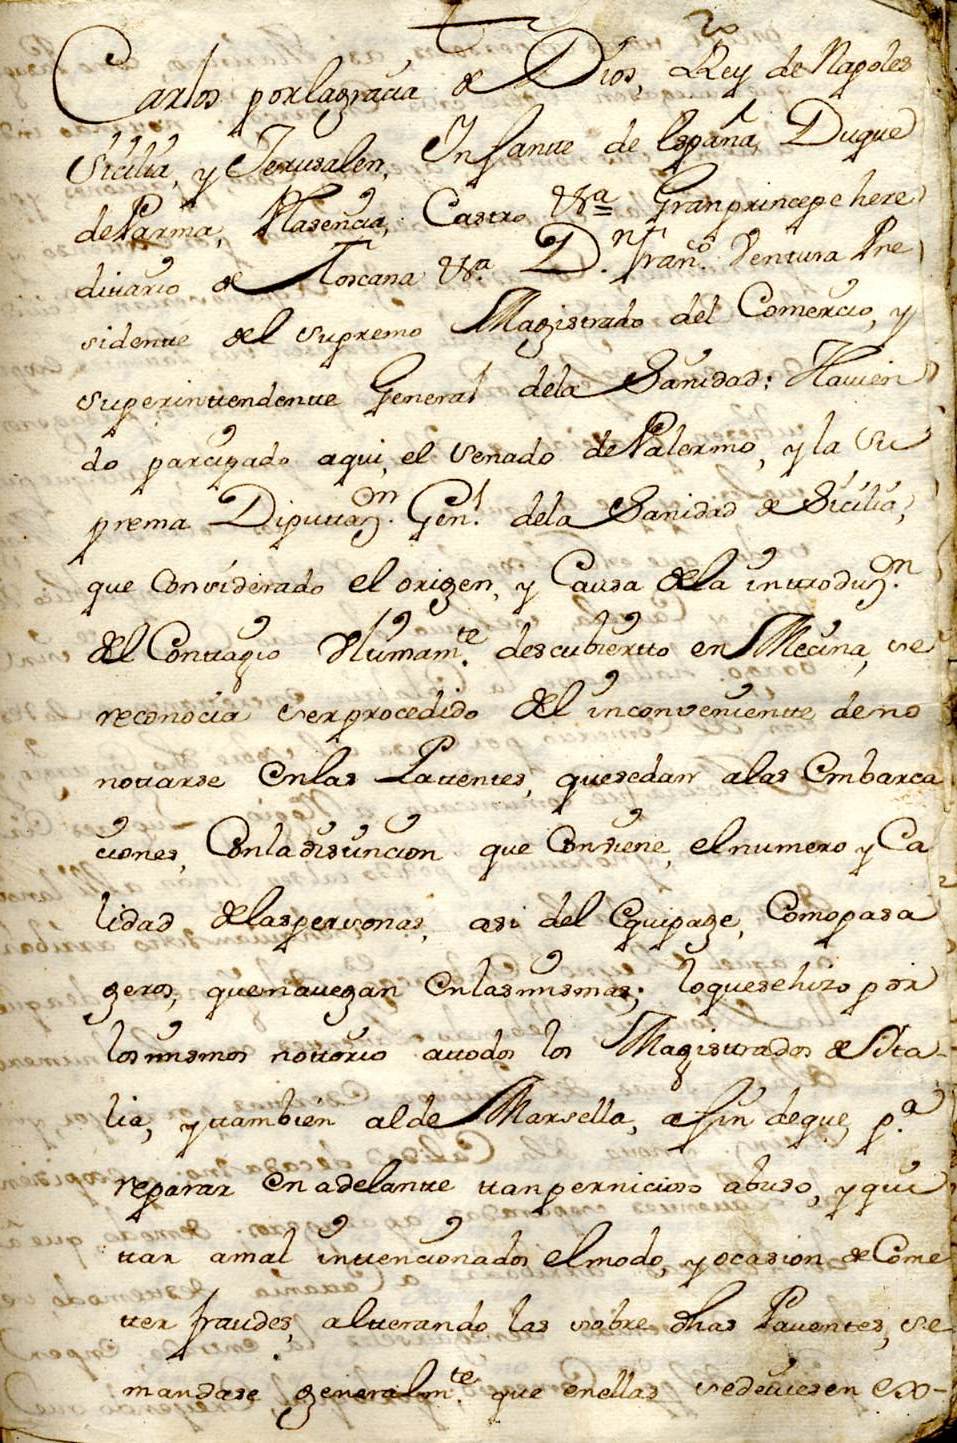 Carlos por la gracia de Dios, Rey de Napoles
Sicilia, y Jerusalen, Infante de España, Duque
de Parma, Plasencia, Castro &a Gran principe here
ditario de Toscana &a Dn. Franco. Ventura Pre
sidente del supremo Magistrado del Comercio, y
superintendente General dela Sanidad: Havien
do parcipado aqui, el senado de Palermo, y la Su
prema Diputaçon. Genl. dela Sanidad de Sicilia,
que considerado el origen, y Causa dela introduçn.
del Contagio ultimamte. descubiertto en Mecina, se
reconocia ser procedido del inconveniente de no
notarse en las Patentes, que se dan a las Embarca
ciones, Con la distincion que Conviene, el numero y Ca
lidad de las personas, asi del Equipage, Como pasa
geros, que navegan en las mismas; lo que se hizo por
los mismos notorio a todos los Magistrados de Ita-
lia, y tambien al de Marsella, a fin de que, pa.
reparar en adelante tan pernicioso abuso, y qui
tar a mal intencionados el modo, y ocasion de Come
ter fraudes, alterando las sobre dhas Patentes, se
mandase generalmte. que en ellas se deviesen ex-